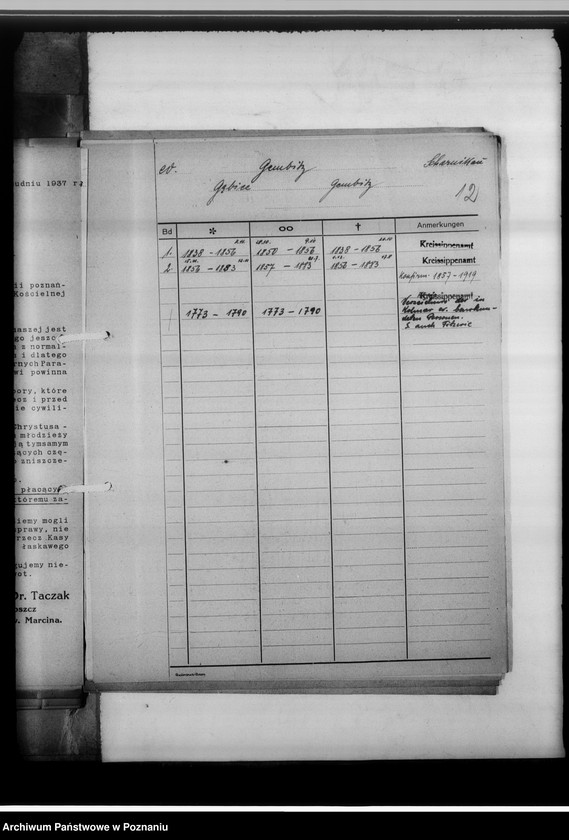 udniu 1937 r.
ii poznań-
Kościelnej
naszej jest
go jeszcze
a z normal-
a i dlatego
rnych Para-
wi powinna
pory, które
osz i przed
ie cywili-
Chrystusa-
a młodzieży
ią tymsamym
iących czę-
e zniszcze-
płacący
któremu za-
iemy mogli
sprawy, nie
rzecz Kasy
łaskawego
gujemy nie-
wot.
Dr. Taczak
oszcz
w. Marcina.
ev. Gembitz Scharnikau
Gębice Gembitz 12
Bd * oo † Anmerkungen
1. 1838 - 1856 1850 - 1856 1838 - 1856 Kreissippenamt
2. 1856 - 1883 1857 - 1943 1856 - 1943 Kreissippenamt
Konfirm. 1857-1919
Kreissippenamt
1773 - 1790 1773 - 1790 Verzeichnis der in
Kolmar ev. beurkun-
deten Personen.
S. auch Filehne
Archiwum Państwowe w Poznaniu